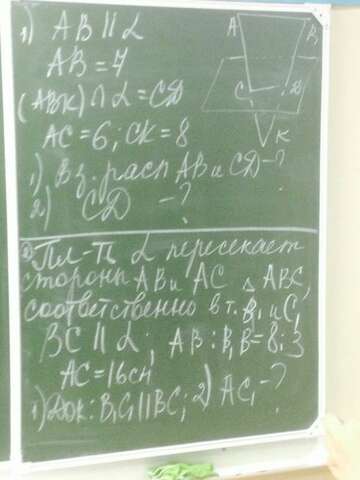 1) AB || α
A
B
AB = 7
(ABK) ∩ α = CD
C
D
AC = 6; CK = 8
K
1) Вз. расп AB и CD - ?
2) CD - ?
2) Пл-ть α пересекает
стороны AB и AC △ ABC,
соответственно в т. B₁ и C₁
BC || α; AB : B₁B = 8 : 3
AC = 16 см
1) Док: B₁C₁ || BC; 2) AC₁ - ?